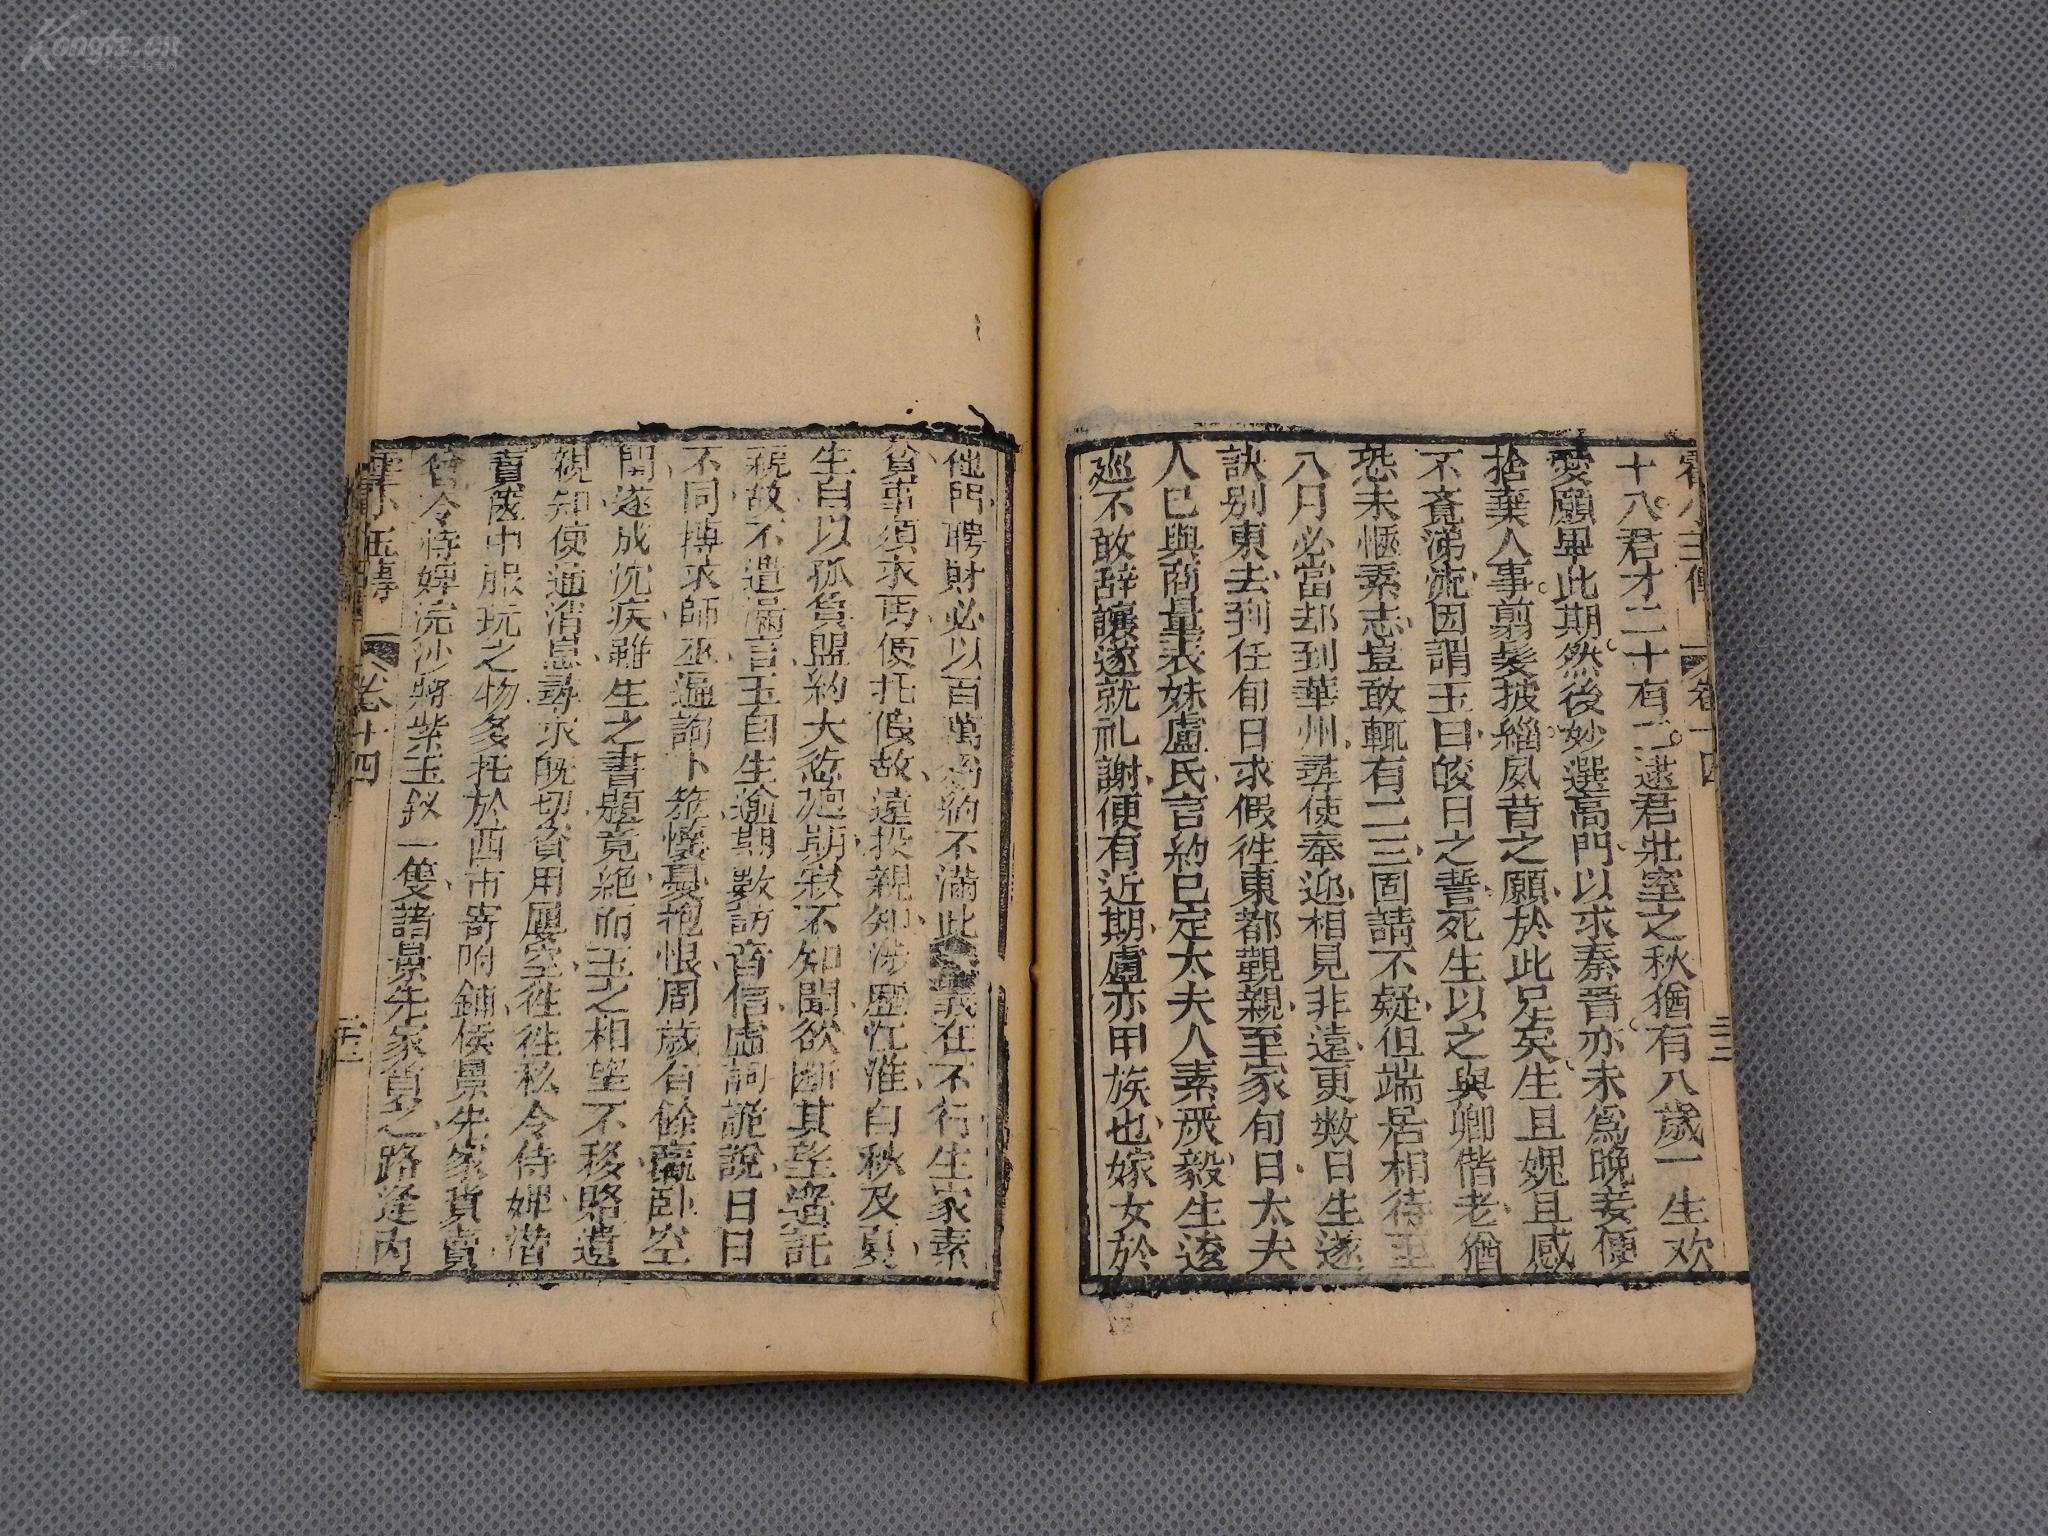 Kongfz.cn
霍小玉傳 卷十四 三
十八君才二十有二逮君壯室之秋猶有八歲一生欢
愛願畢此期然後妙選高門以求秦晉亦未爲晚妾便
捨棄人事剪髮披緇夙昔之願於此足矣生且媿且感
不覺涕流因謂玉曰皎日之誓死生以之與卿偕老猶
恐未愜素志豈敢輒有二三固請不疑但端居相待至
八月必當却到華州尋使奉迎相見非遠更數日生遂
訣別東去到任旬日求假徃東都覲親至家旬日太夫
人已與商量表妹盧氏言約已定太夫人素嚴毅生逡
廵不敢辭讓遂就礼謝便有近期盧亦甲族也嫁女於
他門聘財必以百萬爲約不滿此義在不行生家素
貧事須求丐便托假故遠投親知涉歷江淮自秋及夏
生自以孤負盟約大愆廻期寂不知聞欲斷其望遥託
親故不遣漏言玉自生逾期數訪音信虛詞詭說日日
不同博求師巫遍詢卜筮懷憂抱恨周歲有餘羸卧空
閨遂成沈疾雖生之書題竟絕而玉之相望不移賂遺
親知使通消息尋求旣切資用屢空徃徃私令侍婢潜
賣篋中服玩之物多托於西市寄附鋪侯景先家貨賣
曾令侍婢浣沙將紫玉釵一隻諸景先家貨之路逢内
霍小玉傳 卷十四